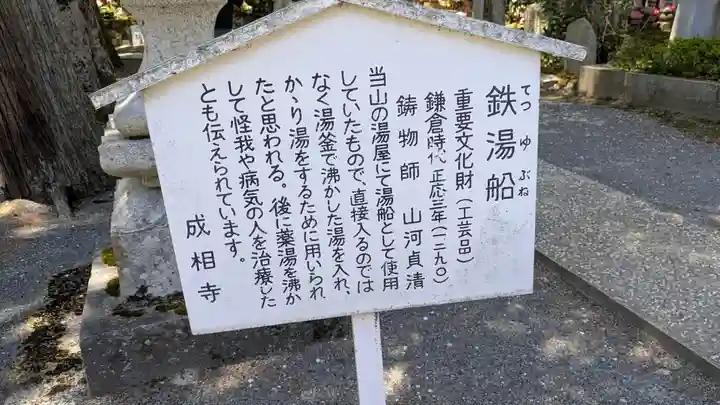 鉄湯船
てつゆぶね
重要文化財（工芸品）
鎌倉時代 正応三年（一二九〇）
鋳物師 山河貞清
当山の湯屋にて湯船として使用
していたもので、直接入るのでは
なく湯釜で沸かした湯を入れ、
かゝり湯をするために用いられ
たと思われる。後に薬湯を沸か
して怪我や病気の人を治療した
とも伝えられています。
成相寺